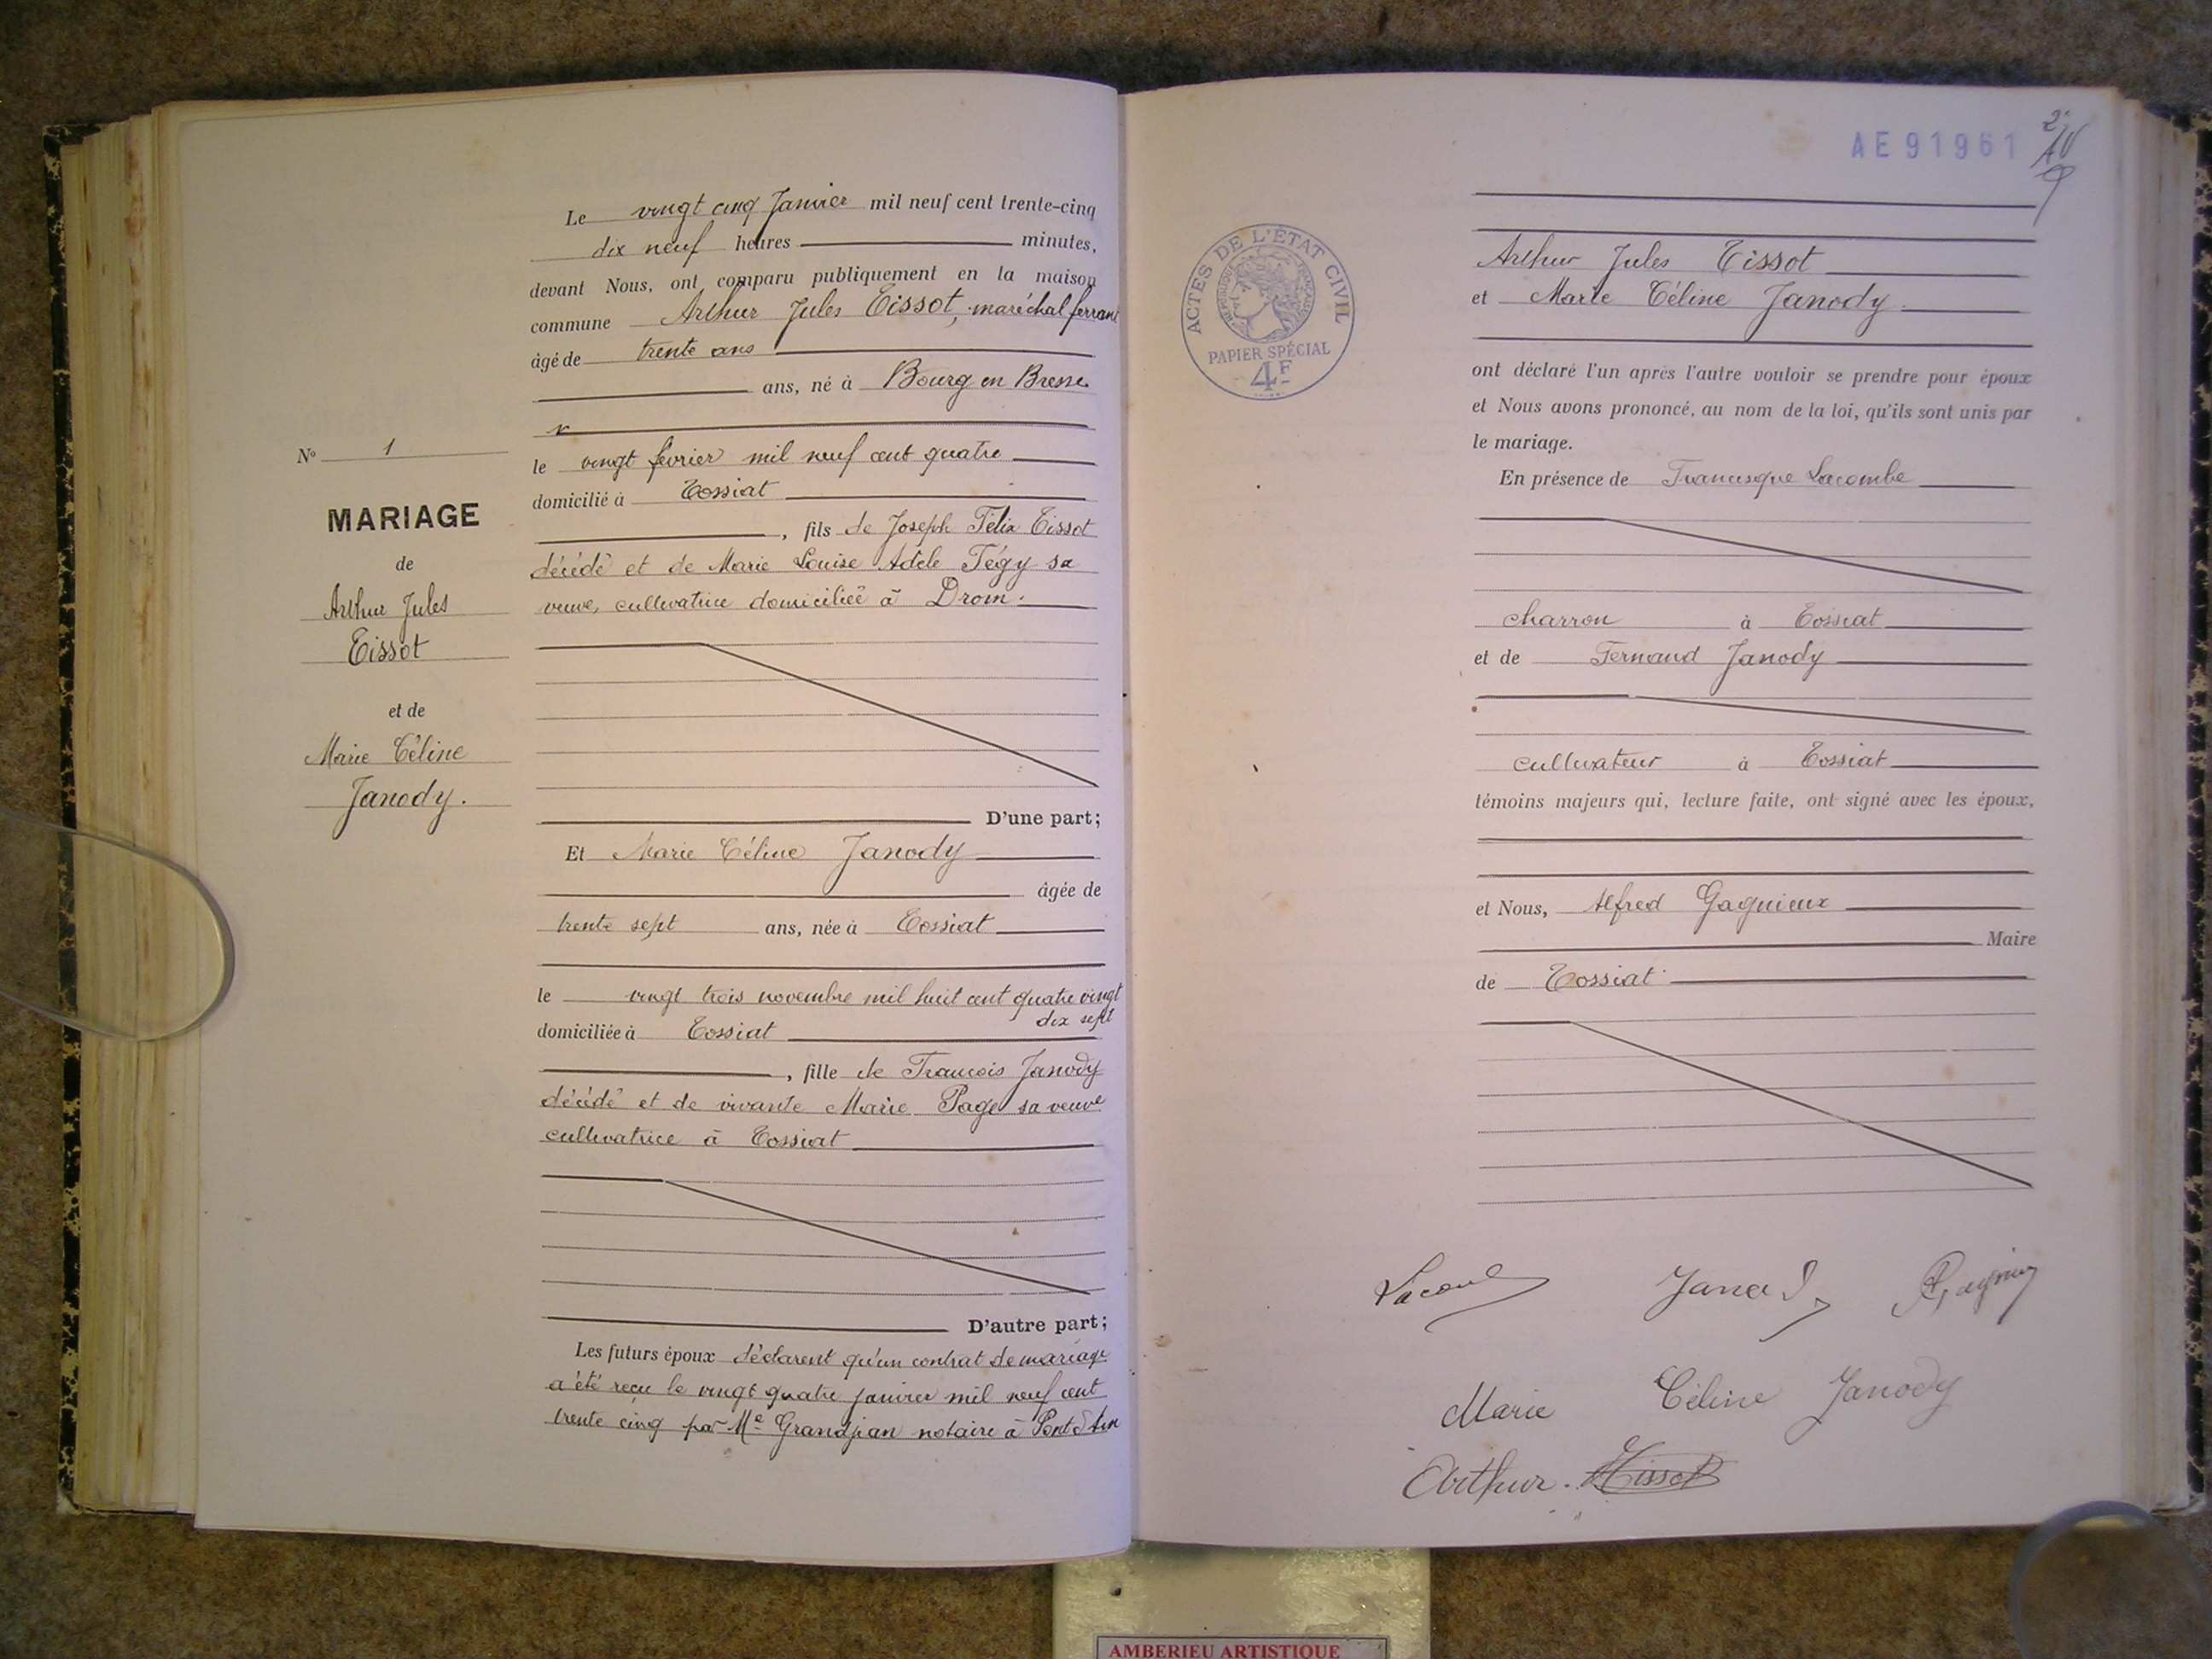 Le vingt cinq Janvier mil neuf cent trente-cinq
dix neuf heures minutes,
devant Nous, ont comparu publiquement en la maison
commune Arthur Jules Tissot, maréchal ferrant
âgé de trente ans
ans, né à Bourg en Bresse
le vingt février mil neuf cent quatre
domicilié à Tossiat
, fils de Joseph Félix Tissot
décédé et de Marie Louise Adèle Tégy sa
veuve, cultivatrice domiciliée à Drom.
D'une part;
Et Marie Céline Janody
âgée de
trente sept ans, née à Tossiat
le vingt trois novembre mil huit cent quatre vingt
dix sept
domiciliée à Tossiat
, fille de François Janody
décédé et de vivante Marie Page sa veuve
cultivatrice à Tossiat
D'autre part;
Les futurs époux déclarent qu'un contrat de mariage
a été reçu le vingt quatre janvier mil neuf cent
trente cinq par Me Grandjean notaire à Pont d'Ain
No 1
MARIAGE
de
Arthur Jules
Tissot
et de
Marie Céline
Janody.
AE91961
ACTES DE L'ÉTAT CIVIL
RÉPUBLIQUE FRANÇAISE
PAPIER SPÉCIAL
4F
Arthur Jules Tissot
et Marie Céline Janody.
ont déclaré l'un après l'autre vouloir se prendre pour époux
et Nous avons prononcé, au nom de la loi, qu'ils sont unis par
le mariage.
En présence de Francisque Lacombe
charron à Tossiat
et de Fernand Janody
cultivateur à Tossiat
témoins majeurs qui, lecture faite, ont signé avec les époux,
et Nous, Alfred Gagnieux
Maire
de Tossiat
Marie Céline Janody
Arthur. Tissot
AMBERIEU ARTISTIQUE